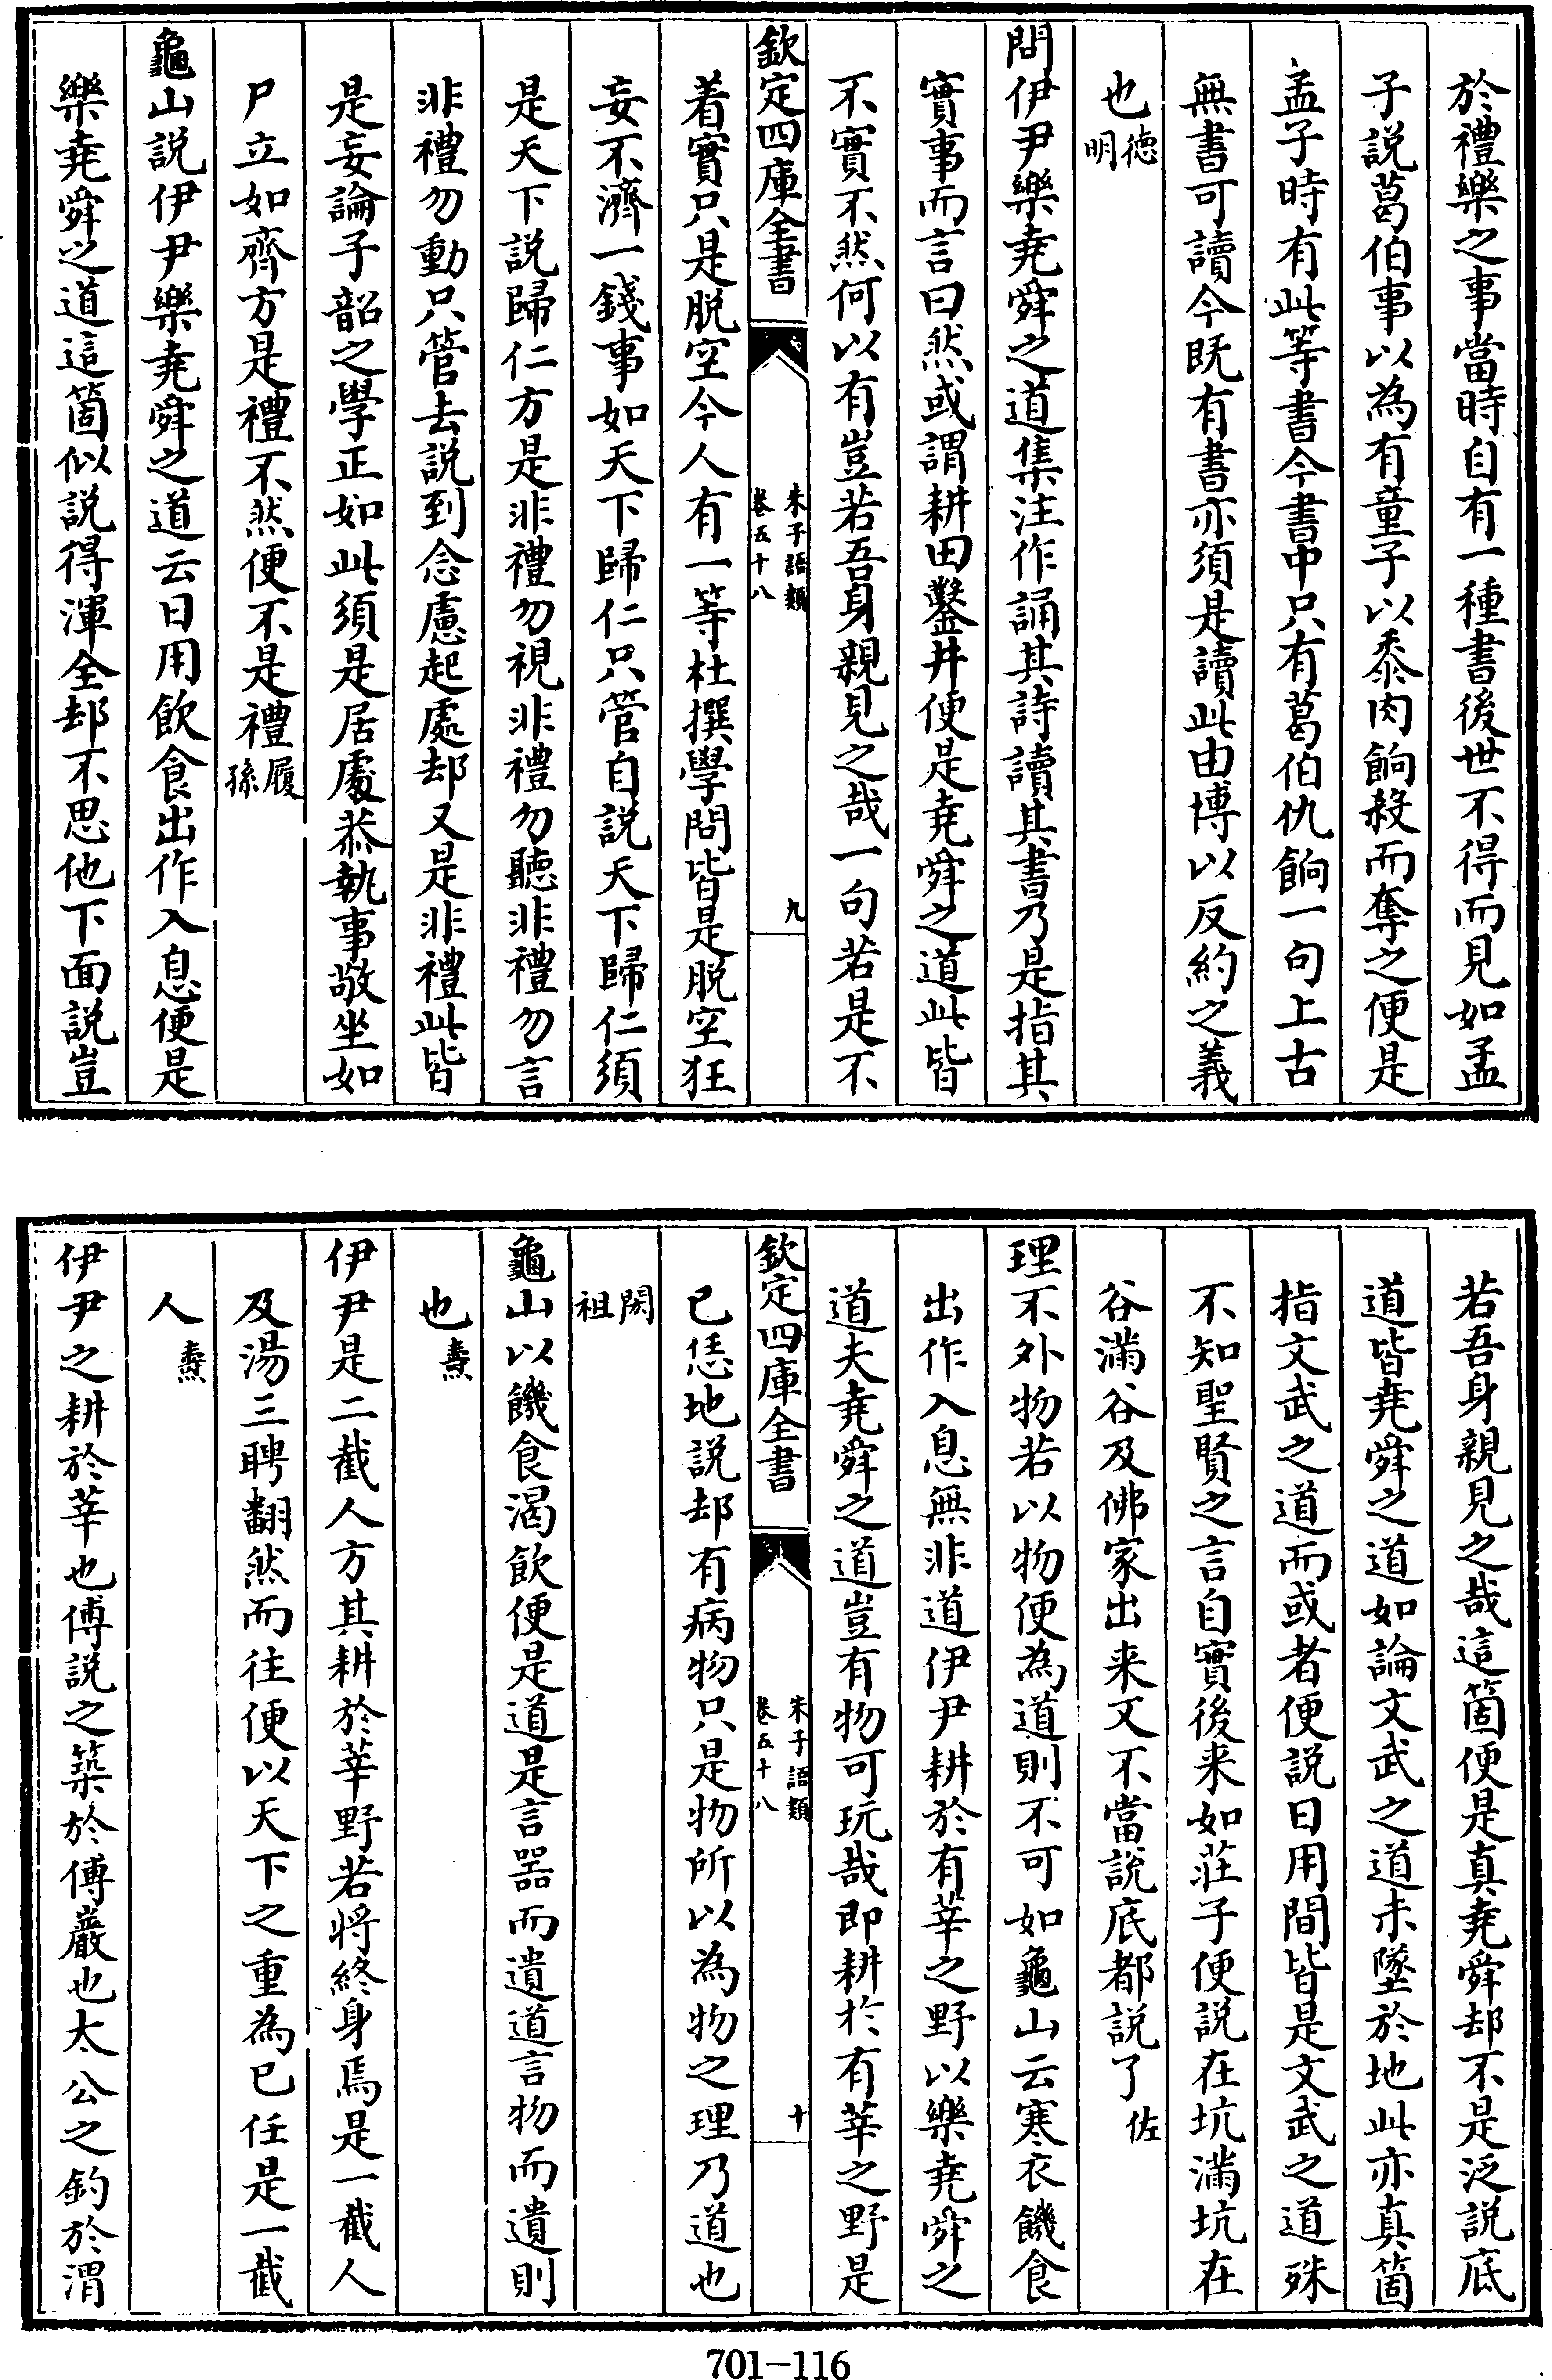 於禮樂之事當時自有一種書後世不得而見如孟
子說葛伯事以為有童子以黍肉餉殺而奪之便是
孟子時有此等書今書中只有葛伯仇餉一句上古
無書可讀今既有書亦須是讀此由博以反約之義
也德明
問伊尹樂堯舜之道集注作誦其詩讀其書乃是指其
實事而言曰然或謂耕田鑿井便是堯舜之道此皆
不實不然何以有豈若吾身親見之哉一句若是不
欽定四庫全書
朱子語類
卷五十八
九
着實只是脱空今人有一等杜撰學問皆是脱空狂
妄不濟一錢事如天下歸仁只管自説天下歸仁須
是天下説歸仁方是非禮勿視非禮勿聽非禮勿言
非禮勿動只管去説到念慮起處却又是非禮此皆
是妄論子韶之學正如此須是居處恭執事敬坐如
尸立如齊方是禮不然便不是禮履孫
龜山説伊尹樂堯舜之道云日用飲食出作入息便是
樂堯舜之道這箇似説得渾全却不思他下面説豈
若吾身親見之哉這箇便是真堯舜却不是泛説底
道皆堯舜之道如論文武之道未墜於地此亦真箇
指文武之道而或者便説日用間皆是文武之道殊
不知聖賢之言自實後来如莊子便説在坑滿坑在
谷滿谷及佛家出来又不當説底都説了佐
理不外物若以物便為道則不可如龜山云寒衣饑食
出作入息無非道伊尹耕於有莘之野以樂堯舜之
道夫堯舜之道豈有物可玩哉即耕於有莘之野是
欽定四庫全書
朱子語類
卷五十八
十
已恁地説却有病物只是物所以為物之理乃道也
閎祖
龜山以饑食渴飲便是道是言器而遺道言物而遺則
也燾
伊尹是二截人方其耕於莘野若將終身焉是一截人
及湯三聘翻然而往便以天下之重為已任是一截
人燾
伊尹之耕於莘也傅説之築於傅巖也太公之釣於渭
701-116